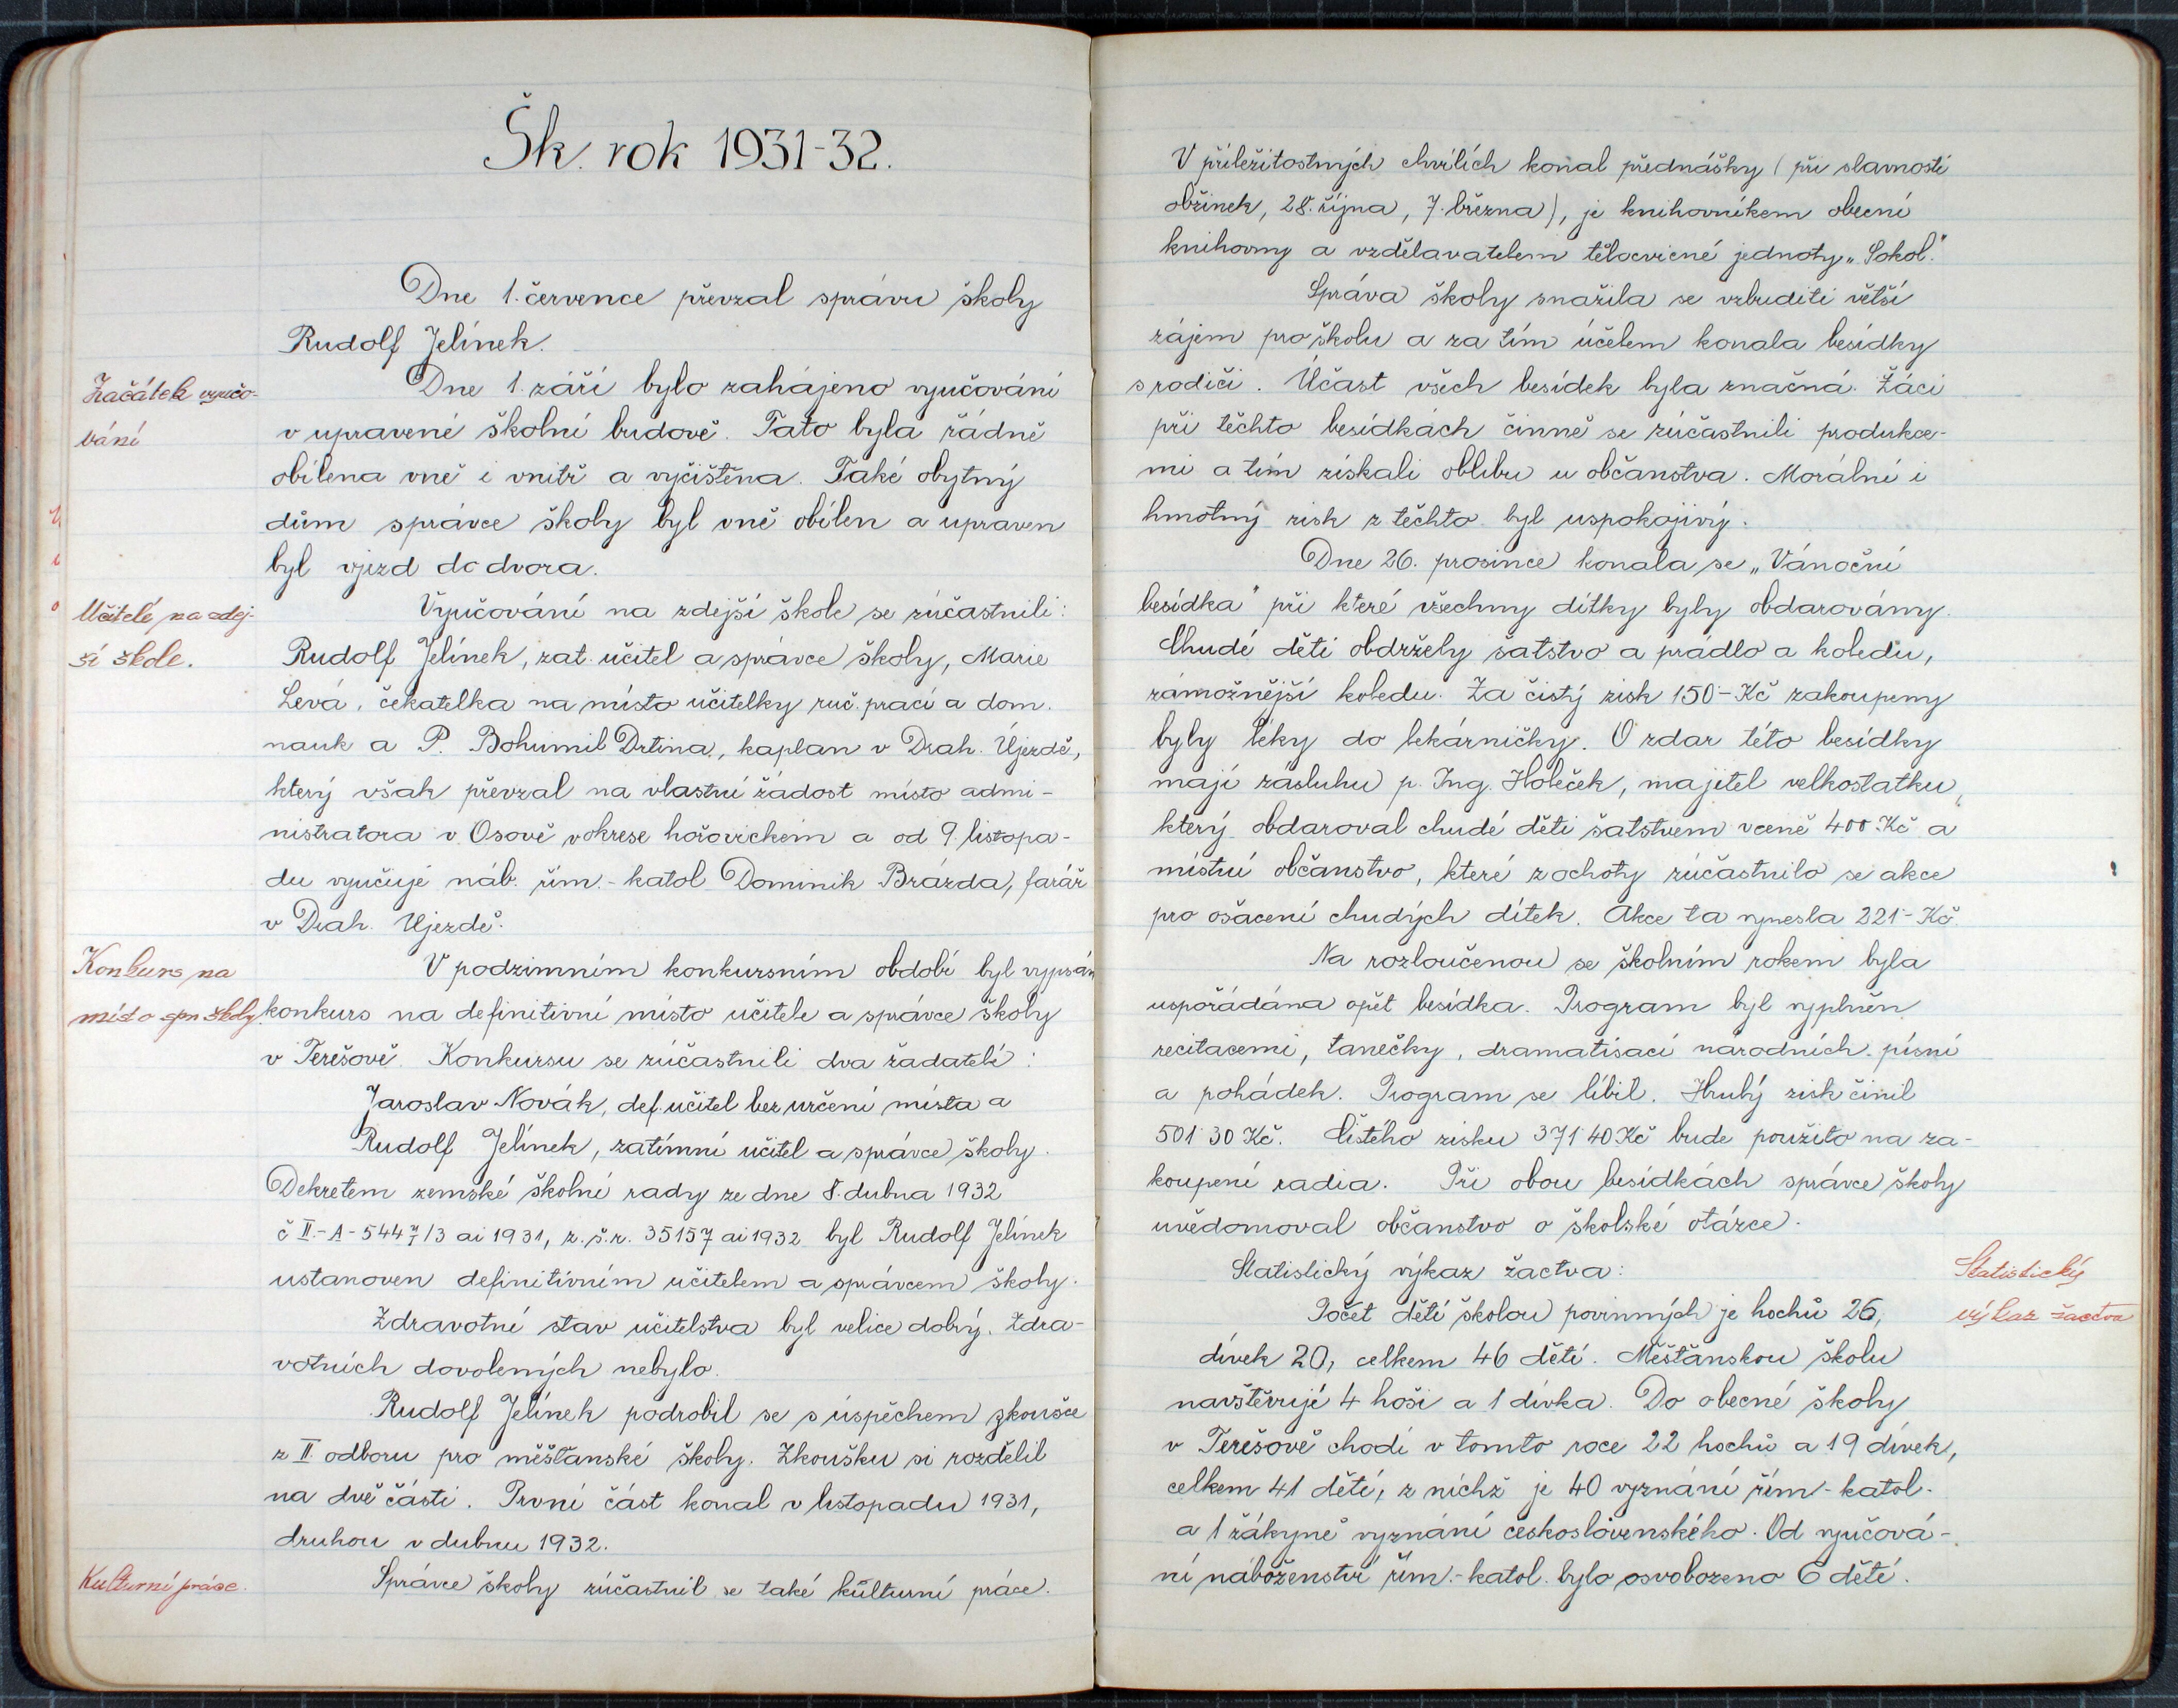 Šk. rok 1931-32.
Dne 1. července převzal správu školy
Rudolf Jelínek.
Začátek vyučo-
vání
Dne 1. září bylo zahájeno vyučování
v upravené školní budově. Tato byla řádně
obílena vně i vnitř a vyčištěna. Také obytný
dům správce školy byl vně obílen a upraven
byl vjezd do dvora.
Učitelé na zdej-
ší škole.
Vyučování na zdejší škole se zúčastnili:
Rudolf Jelínek, zat. učitel a správce školy, Marie
Levá, čekatelka na místo učitelky ruč. prací a dom.
nauk a P. Bohumil Drtina, kaplan v Drah. Újezdě,
který však převzal na vlastní žádost místo admi-
nistratora v Osově v okrese hořovickém a od 9. listopa-
du vyučuje náb. řím.-katol. Dominik Brázda, farář
v Drah. Újezdě.
Konkurs na
místo spr. školy
V podzimním konkursním období byl vypsán
konkurs na definitivní místo učitele a správce školy
v Terešově. Konkursu se zúčastnili dva žadatelé:
Jaroslav Novák, def. učitel bez určení místa a
Rudolf Jelínek, zatímní učitel a správce školy.
Dekretem zemské školní rady ze dne 8. dubna 1932
č II.-A-5447/3 ai 1931, z.š.r. 35157 ai 1932 byl Rudolf Jelínek
ustanoven definitivním učitelem a správcem školy.
Zdravotní stav učitelstva byl velice dobrý. Zdra-
votních dovolených nebylo.
Rudolf Jelínek podrobil se s úspěchem zkoušce
z II. odboru pro měšťanské školy. Zkoušku si rozdělil
na dvě části. První část konal v listopadu 1931,
druhou v dubnu 1932.
Kulturní práce.
Správce školy zúčastnil se také kulturní práce.
V příležitostných chvílích konal přednášky (při slavnosti
obžinek, 28. října, 7. března), je knihovníkem obecní
knihovny a vzdělavatelem tělocvičné jednoty „Sokol."
Správa školy snažila se vzbuditi větší
zájem pro školu a za tím účelem konala besídky
s rodiči. Účast všech besídek byla značná. Žáci
při těchto besídkách činně se zúčastnili produkce-
mi a tím získali oblibu u občanstva. Morální i
hmotný zisk z těchto byl uspokojivý.
Dne 26. prosince konala se „Vánoční
besídka" při které všechny dítky byly obdarovány.
Chudé děti obdržely šatstvo a prádlo a koledu,
zámožnější koledu. Za čistý zisk 150-Kč zakoupeny
byly léky do lekárničky. O zdar této besídky
mají zásluhu p. Ing. Holeček, majitel velkostatku,
který obdaroval chudé děti šatstvem v ceně 400.-Kč a
místní občanstvo, které z ochoty zúčastnilo se akce
pro ošacení chudých dítek. Akce ta vynesla 221-Kč.
Na rozloučenou se školním rokem byla
uspořádána opět besídka. Program byl vyplněn
recitacemi, tanečky, dramatisací národních písní
a pohádek. Program se líbil. Hrubý zisk činil
501˙30 Kč. Čistého zisku 371˙40 Kč bude použito na za-
koupení radia. Při obou besídkách správce školy
uvědomoval občanstvo o školské otázce.
Statistický
výkaz žactva
Statistický výkaz žactva:
Počet dětí školou povinných je hochů 26,
dívek 20, celkem 46 dětí. Měšťanskou školu
navštěvují 4 hoši a 1 dívka. Do obecné školy
v Terešově chodí v tomto roce 22 hochů a 19 dívek,
celkem 41 dětí, z nichž je 40 vyznání řím-katol.
a 1 žákyně vyznání československého. Od vyučová-
ní náboženství řím.-katol. bylo osvobozeno 6 dětí.